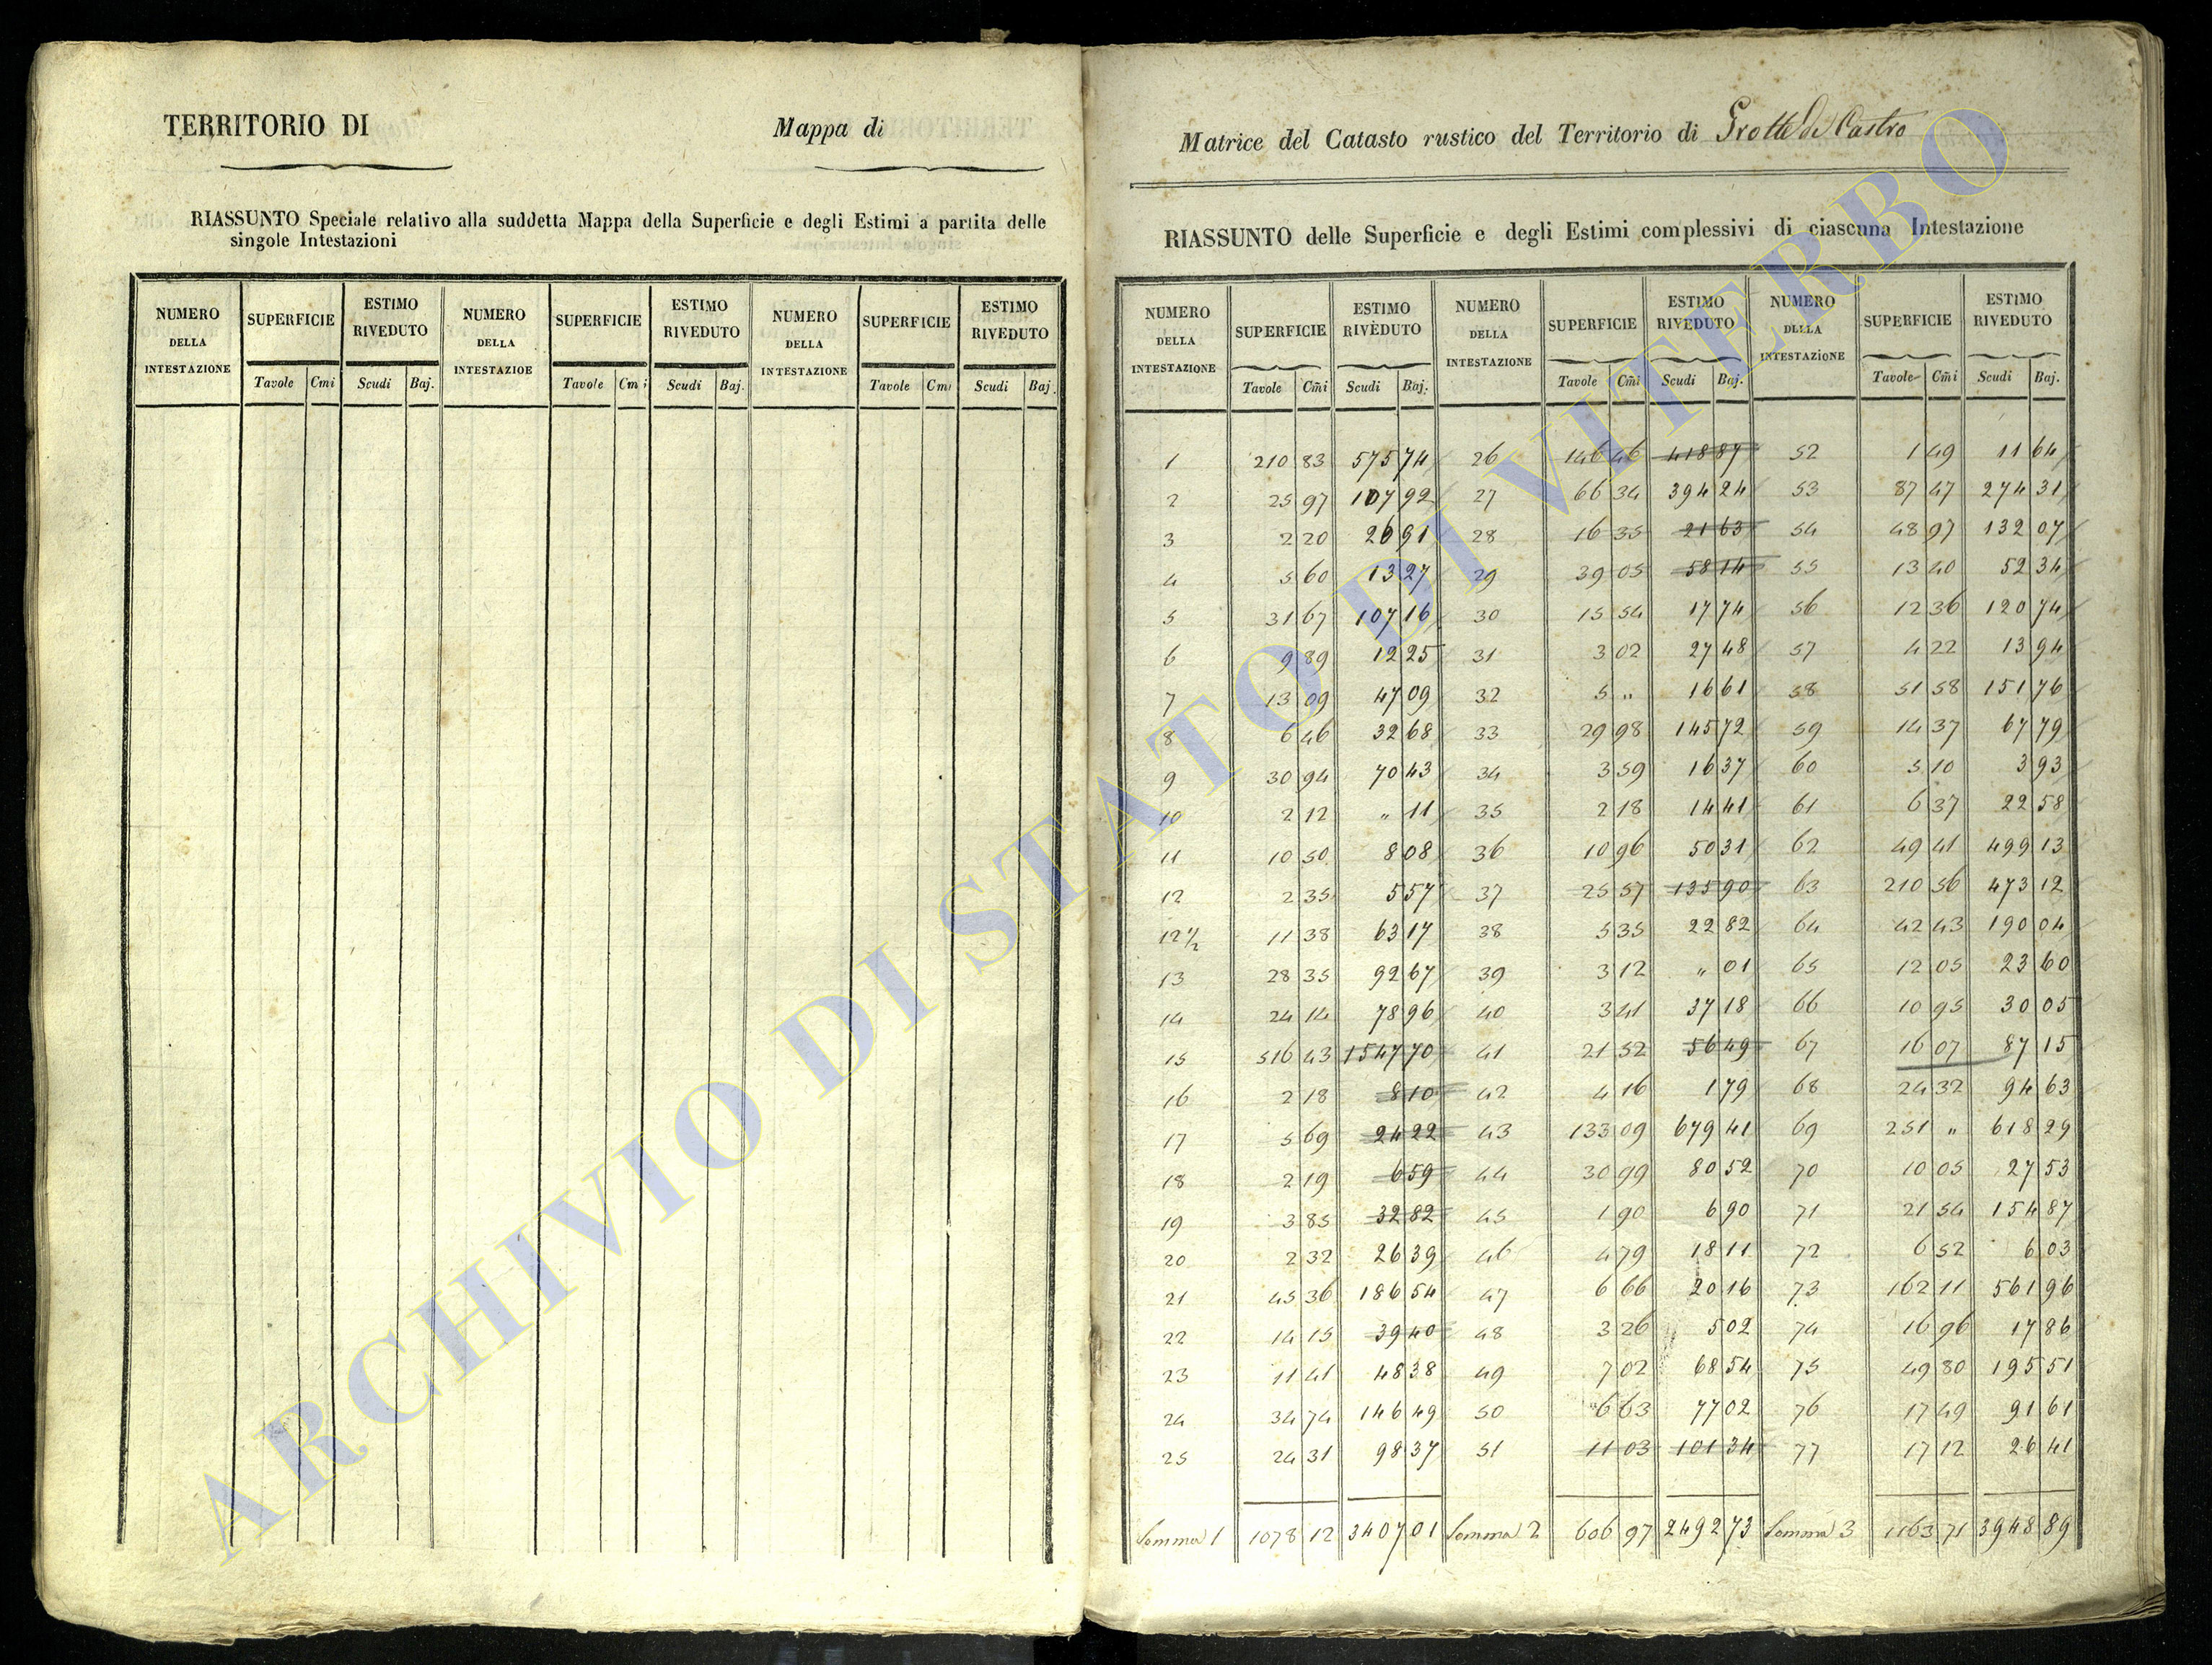 TERRITORIO DI Mappa di
RIASSUNTO Speciale relativo alla suddetta Mappa della Superficie e degli Estimi a partita delle
singole Intestazioni
NUMERO DELLA INTESTAZIONE SUPERFICIE ESTIMO RIVEDUTO NUMERO DELLA INTESTAZIOE SUPERFICIE ESTIMO RIVEDUTO NUMERO DELLA INTESTAZIONE SUPERFICIE ESTIMO RIVEDUTO
Tavole Cmi Scudi Baj. Tavole Cmi Scudi Baj. Tavole Cmi Scudi Baj.
Matrice del Catasto rustico del Territorio di Grotte di Castro
RIASSUNTO delle Superficie e degli Estimi complessivi di ciascuna Intestazione
NUMERO DELLA INTESTAZIONE SUPERFICIE ESTIMO RIVEDUTO NUMERO DELLA INTESTAZIONE SUPERFICIE ESTIMO RIVEDUTO NUMERO DELLA INTESTAZIONE SUPERFICIE ESTIMO RIVEDUTO
Tavole Cm̃i Scudi Baj. Tavole Cm̃i Scudi Baj. Tavole Cm̃i Scudi Baj.
1 210 83 575 74 26 146 46 418 87 52 1 49 11 64
2 25 97 107 92 27 66 34 394 24 53 87 47 274 31
3 2 20 26 91 28 16 35 21 63 54 48 97 132 07
4 5 60 13 27 29 39 05 58 14 55 13 40 52 34
5 31 67 107 16 30 15 54 17 74 56 12 36 120 74
6 9 89 12 25 31 3 02 27 48 57 4 22 13 94
7 13 09 47 09 32 5 " 16 61 58 51 58 151 76
8 6 46 32 68 33 29 98 145 72 59 14 37 67 79
9 30 94 70 43 34 3 59 16 37 60 5 10 3 93
10 2 12 " 11 35 2 18 14 41 61 6 37 22 58
11 10 50 8 08 36 10 96 50 31 62 49 41 499 13
12 2 35 5 57 37 25 57 135 90 63 210 56 473 12
12 1/2 11 38 63 17 38 5 35 22 82 64 42 43 190 04
13 28 35 92 67 39 3 12 " 01 65 12 05 23 60
14 24 14 78 96 40 3 41 37 18 66 10 95 30 05
15 516 43 1547 70 41 21 52 56 49 67 16 07 87 15
16 2 18 8 10 42 4 16 1 79 68 24 32 94 63
17 5 69 24 22 43 133 09 679 41 69 251 " 618 29
18 2 19 6 59 44 30 99 80 52 70 10 05 27 53
19 3 85 32 82 45 1 90 6 90 71 21 54 154 87
20 2 32 26 39 46 4 79 18 11 72 6 52 6 03
21 45 36 186 54 47 6 66 20 16 73 162 11 561 96
22 14 15 39 40 48 3 26 5 02 74 16 96 17 86
23 11 41 48 38 49 7 02 68 54 75 49 80 195 51
24 34 74 146 49 50 6 63 77 02 76 17 49 91 61
25 24 31 98 37 51 11 03 101 34 77 17 12 26 41
Somma 1 1078 12 3407 01 Somma 2 606 97 2492 73 Somma 3 1163 71 3948 89
ARCHIVIO DI STATO DI VITERBO